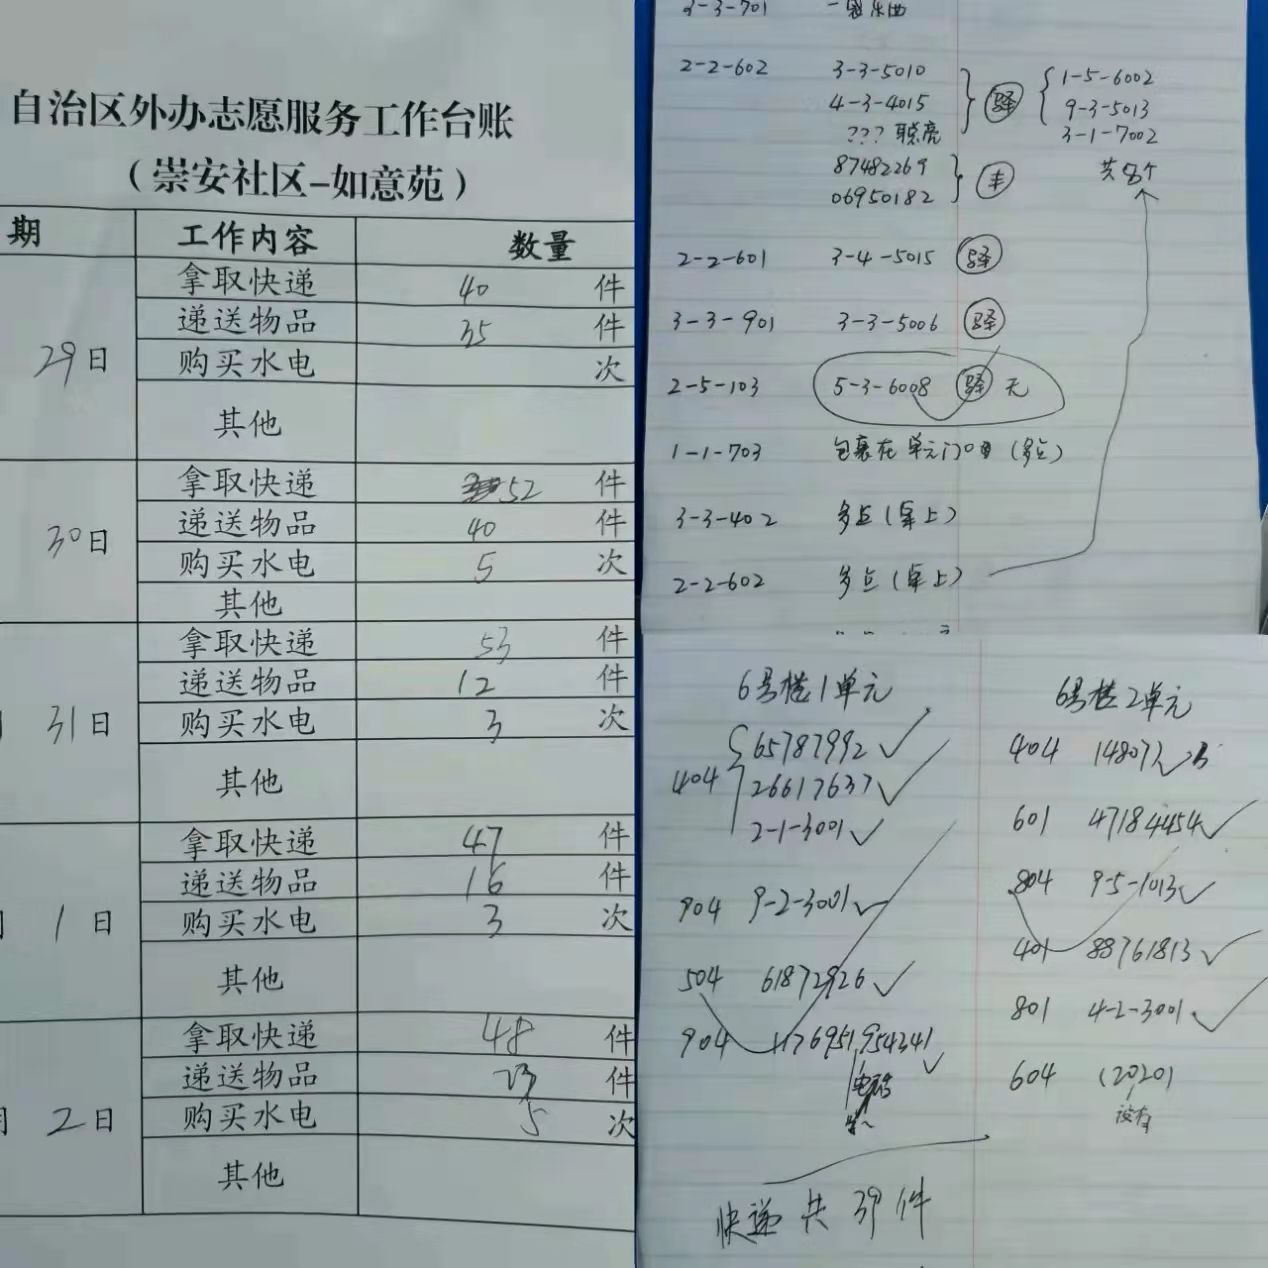 自治区外办志愿服务工作台账
（崇安社区-如意苑）
期 工作内容 数量
29日
拿取快递 40 件
递送物品 35 件
购买水电 次
其他
30日
拿取快递 52 件
递送物品 40 件
购买水电 5 次
其他
31日
拿取快递 53 件
递送物品 12 件
购买水电 3 次
其他
1日
拿取快递 47 件
递送物品 16 件
购买水电 3 次
其他
2日
拿取快递 48 件
递送物品 23 件
购买水电 5 次
其他
3-3-701 一袋东西
2-2-602 3-3-5010
4-3-4015 驿
??? 联亮
87482269
06950182 丰
1-5-6002
9-3-5013
3-1-7002
共8个
2-2-601 3-4-5015 驿
3-3-901 3-3-5006 驿
2-5-103 5-3-6008 驿 无
1-1-703 包裹在单元门口（多点）
3-3-402 多点（桌上）
2-2-602 多点（桌上）
6号楼1单元
404 65787992
26617637
2-1-3001
904 9-2-3001
504 61872926
904 1176951954341
电话
6号楼2单元
404 148077
601 47184454
804 9-5-1013
401 88761813
801 4-2-3001
604 (2020)
没有
快递共39件